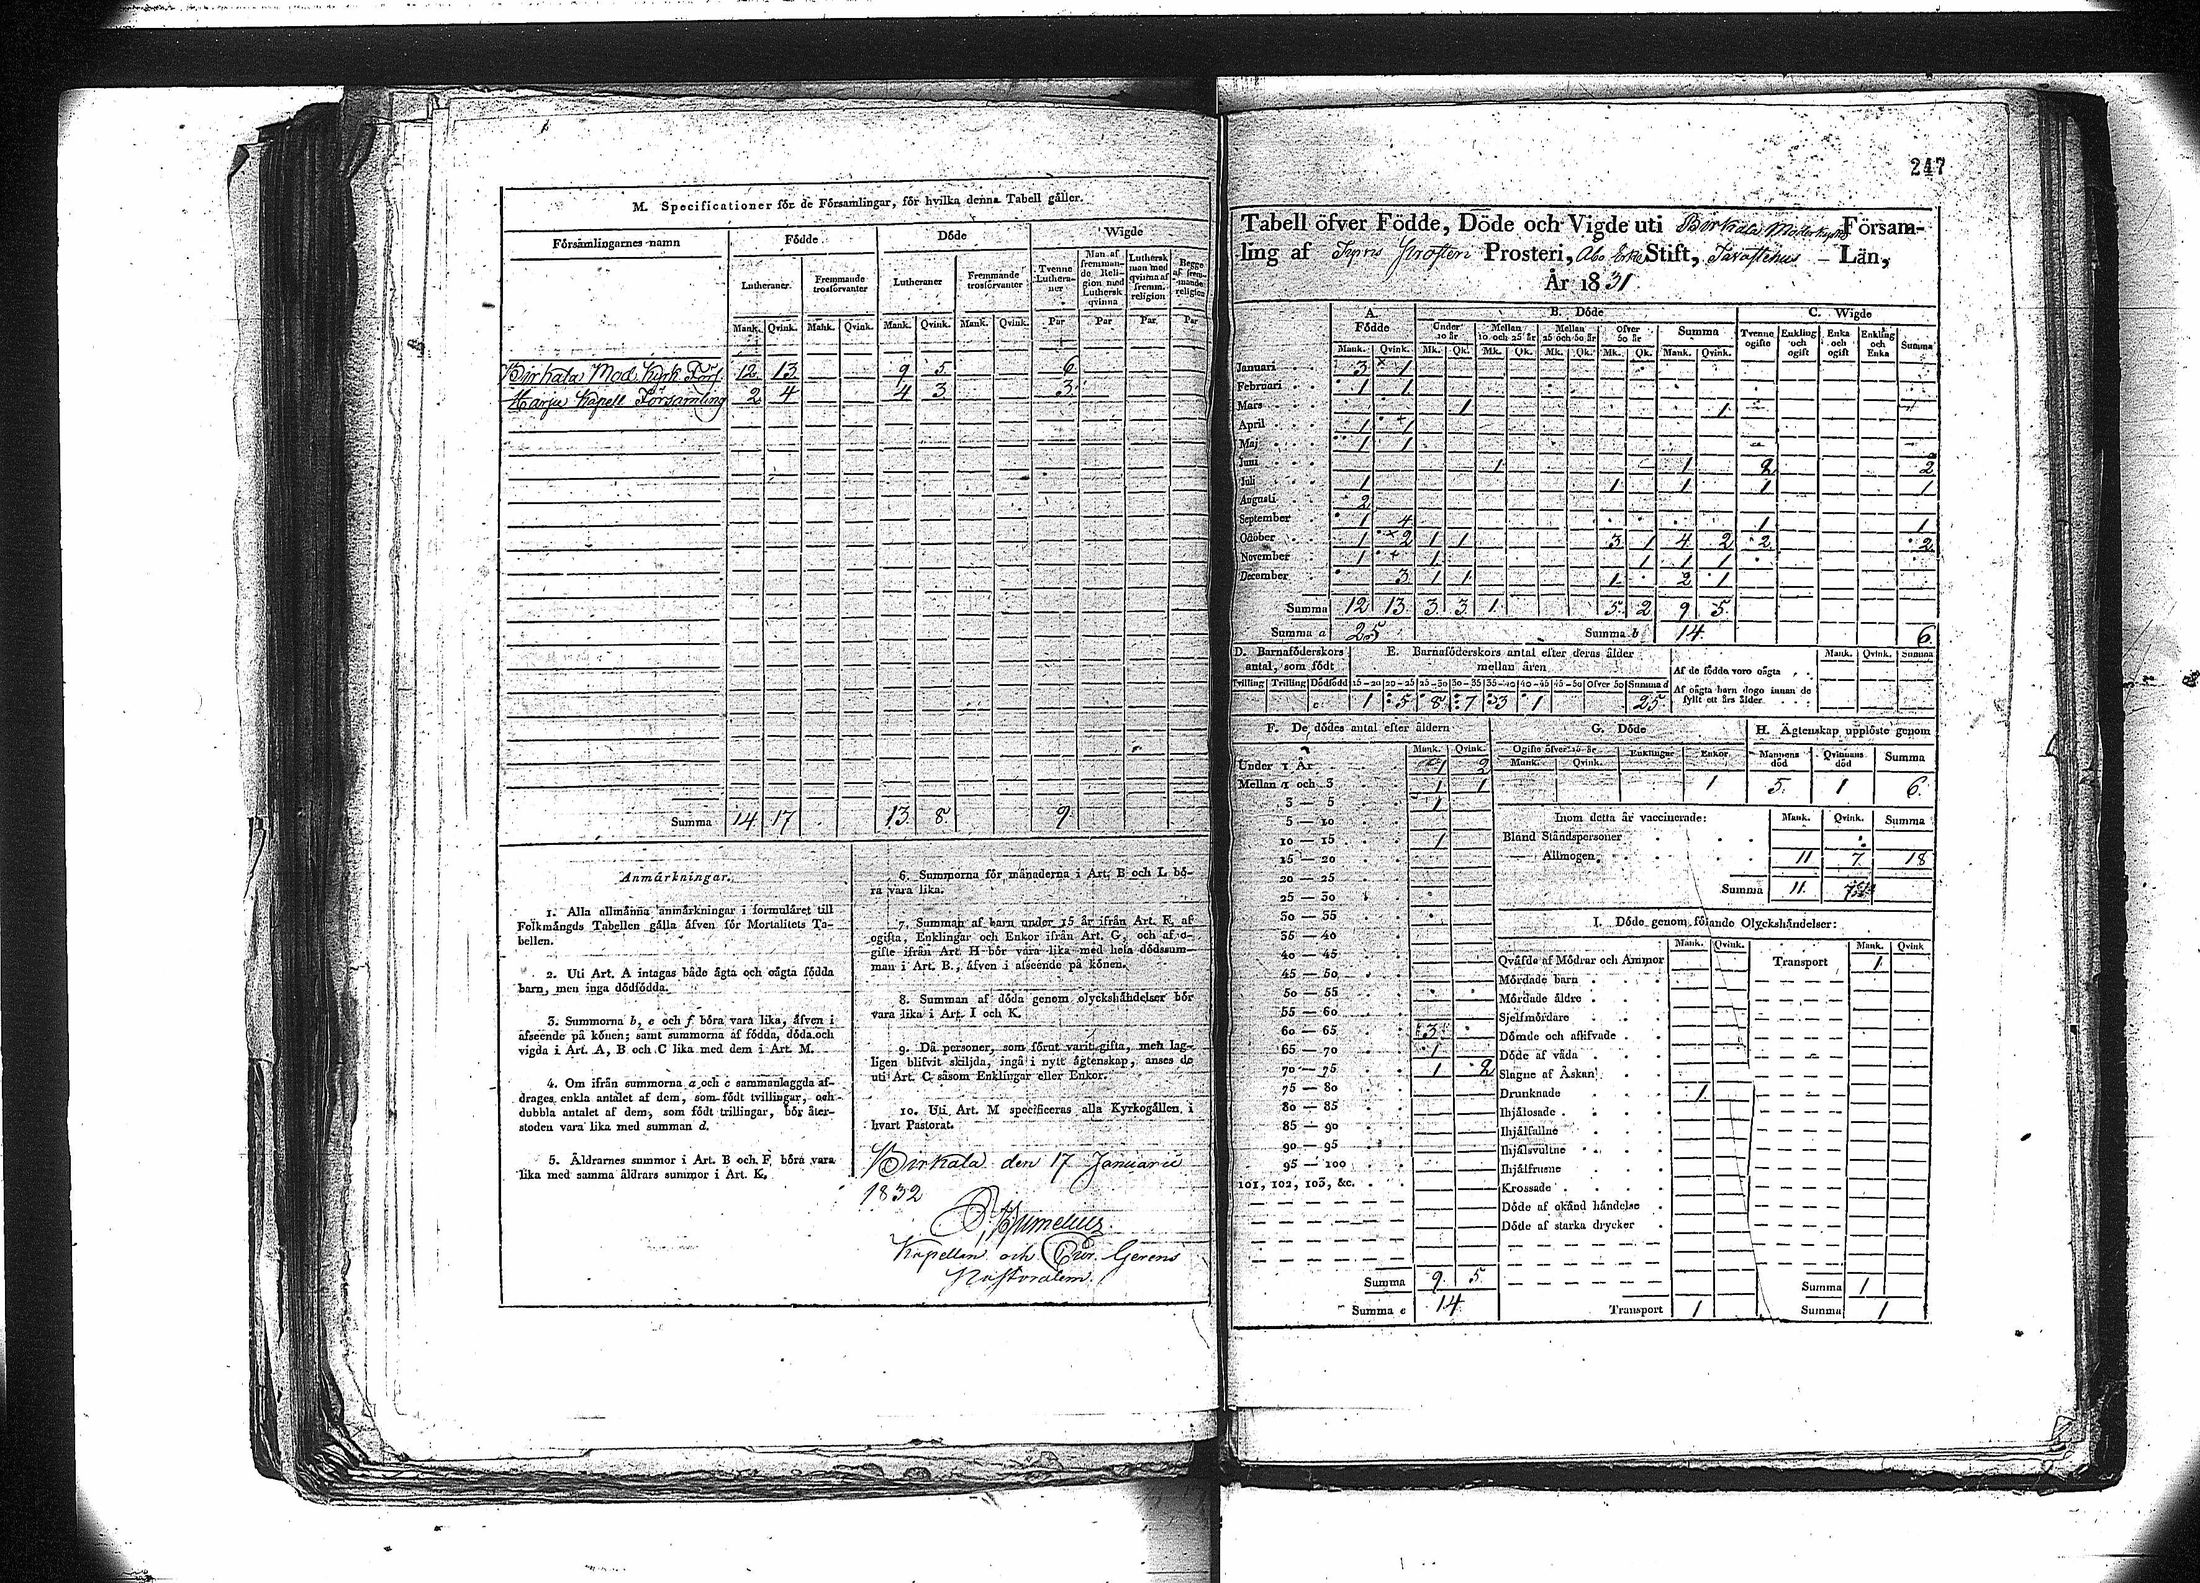 M. Specificationer för de Församlingar, för hvilka denna Tabell gäller.
Församlingarnes namn | Födde | Döde | Wigde
Lutheraner | Fremmande trosförvanter | Lutheraner | Fremmande trosförvanter | Tvenne Lutheraner | Man af fremmande Religion med Luthersk qvinna | Luthersk man med qvinna af fremm. religion | Begge af fremmande religion
Mank. | Qvink. | Mank. | Qvink. | Mank. | Qvink. | Mank. | Qvink. | Par | Par | Par | Par
Birkala Mod. Kyrk. Förs | 12 | 13 | 9 | 5 | 6
Harju Kapell Församling | 2 | 4 | 4 | 3 | 3
Summa | 14 | 17 | 13 | 8 | 9
Anmärkningar.
1. Alla allmänna anmärkningar i formuläret till
Folkmängds Tabellen gälla äfven för Mortalitets Ta-
bellen.
2. Uti Art. A intagas både ägta och oägta födda
barn, men inga dödfödda.
3. Summorna b, e och f böra vara lika, äfven i
afseende på könen; samt summorna af födda, döda och
vigda i Art. A, B och C lika med dem i Art. M.
4. Om ifrån summorna a och c sammanlaggda af-
drages enkla antalet af dem, som födt tvillingar, och
dubbla antalet af dem, som födt trillingar, bör åter-
stoden vara lika med summan d.
5. Åldrarnes summor i Art. B och F böra vara
lika med samma åldrars summor i Art. K.
6. Summorna för månaderna i Art. B och L bö-
ra vara lika.
7. Summan af barn under 15 år ifrån Art. F, af
ogifta, Enklingar och Enkor ifrån Art. G. och af
gifte ifrån Art. H bör vara lika med hela dödssum-
man i Art. B., äfven i afseende på könen.
8. Summan af döda genom olyckshändelser bör
vara lika i Art. I och K.
9. Då personer, som förut varit gifta, men lag-
ligen blifvit skiljda, ingå i nytt ägtenskap, anses de
uti Art. C såsom Enklingar eller Enkor.
10. Uti Art. M specificeras alla Kyrkogällen i
hvart Pastorat.
Birkala den 17 Januarii
1832
Kapellan och Cur. Gerens
Pastoralem.
247
Tabell öfver Födde, Döde och Vigde uti Birkala Moderkyrko Församling
af Prosteri, Åbo Erke Stift, Tavastehus Län,
År 1831
A. Födde | B. Döde | C. Wigde
Under 10 år | Mellan 10 och 25 år | Mellan 25 och 50 år | Öfver 50 år | Summa | Tvenne ogifte | Enkling och ogift | Enka och ogift | Enkling och Enka | Summa
Mank. | Qvink. | Mk. | Qk. | Mk. | Qk. | Mk. | Qk. | Mk. | Qk. | Mank. | Qvink.
Januari | 3 | 1
Februari | 1 | 1
Mars | 1 | 1
April | 1 | 1
Maj | 1 | 1
Juni | 1 | 1 | 2 | 2
Juli | 1 | 1 | 1 | 1 | 1
Augusti | 2
September | 1 | 4 | 1 | 1
October | 1 | 2 | 1 | 1 | 3 | 1 | 4 | 2 | 2 | 2
November | 1 | 1 | 1 | 1 | 1
December | 3 | 1 | 1 | 1 | 2 | 1
Summa | 12 | 13 | 3 | 3 | 1 | 5 | 2 | 9 | 5
Summa a | 25 | Summa b | 14 | 6
D. Barnaföderskors antal, som födt | E. Barnaföderskors antal efter deras ålder mellan åren | Mank. | Qvink. | Summa
Tvilling | Trilling | Dödfödd | 15-20 | 20-25 | 25-30 | 30-35 | 35-40 | 40-45 | 45-50 | Öfver 50 | Summa d
c | 1 | 5 | 8 | 7 | 3 | 1 | 25
Af de födda voro oägta
Af oägta barn dogo innan de fyllt ett års ålder
F. De dödes antal efter åldern | G. Döde | H. Ägtenskap upplöste genom
Mank. | Qvink. | Ogifte öfver 15 år | Enklingar | Enkor | Mannens död | Qvinnans död | Summa
Mank. | Qvink.
1 | 5 | 1 | 6
Under 1 År | 1 | 2
Mellan 1 och 3 | 1 | 1
3 — 5 | 1
5 — 10
10 — 15 | 1
15 — 20
20 — 25
25 — 30
30 — 35
35 — 40
40 — 45
45 — 50
50 — 55
55 — 60
60 — 65 | 3
65 — 70 | 1
70 — 75 | 1 | 2
75 — 80
80 — 85
85 — 90
90 — 95
95 — 100
101, 102, 103, &c.
Summa | 9 | 5
Summa e | 14
Inom detta år vaccinerade: | Mank. | Qvink. | Summa
Bland Ståndspersoner
— Allmogen | 11 | 7 | 18
Summa | 11
I. Döde genom följande Olyckshändelser:
Mank. | Qvink. | Mank. | Qvink
Qväfde af Mödrar och Ammor | Transport | 1
Mördade barn
Mördade äldre
Sjelfmördare
Dömde och aflifvade
Döde af våda
Slagne af Åskan
Drunknade | 1
Ihjälosade
Ihjälfallne
Ihjälsvultne
Ihjälfrusne
Krossade
Döde af okänd händelse
Döde af starka drycker
Summa | 1
Transport | 1 | Summa | 1